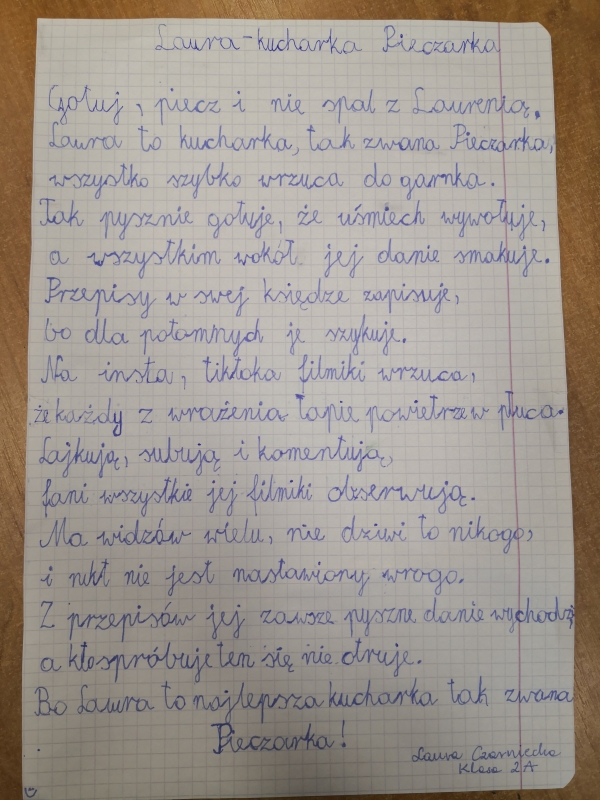 Laura-kucharka Pieczarka
Gotuj, piecz i nie spal z Laurenią.
Laura to kucharka, tak zwana Pieczarka,
wszystko szybko wrzuca do garnka.
Tak pysznie gotuje, że uśmiech wywołuje,
a wszystkim wokół jej danie smakuje.
Przepisy w swej księdze zapisuje,
bo dla potomnych je szykuje.
Na insta, tiktoka filmiki wrzuca,
że każdy z wrażenia łapie powietrze w płuca.
Lajkują, subują i komentują,
fani wszystkie jej filmiki obserwują.
Ma widzów wielu, nie dziwi to nikogo,
i nikt nie jest nastawiony wrogo.
Z przepisów jej zawsze pyszne danie wychodzi,
a kto spróbuje ten się nie otruje.
Bo Laura to najlepsza kucharka tak zwana
Pieczarka!
Laura Czarniecka
Klasa 2A